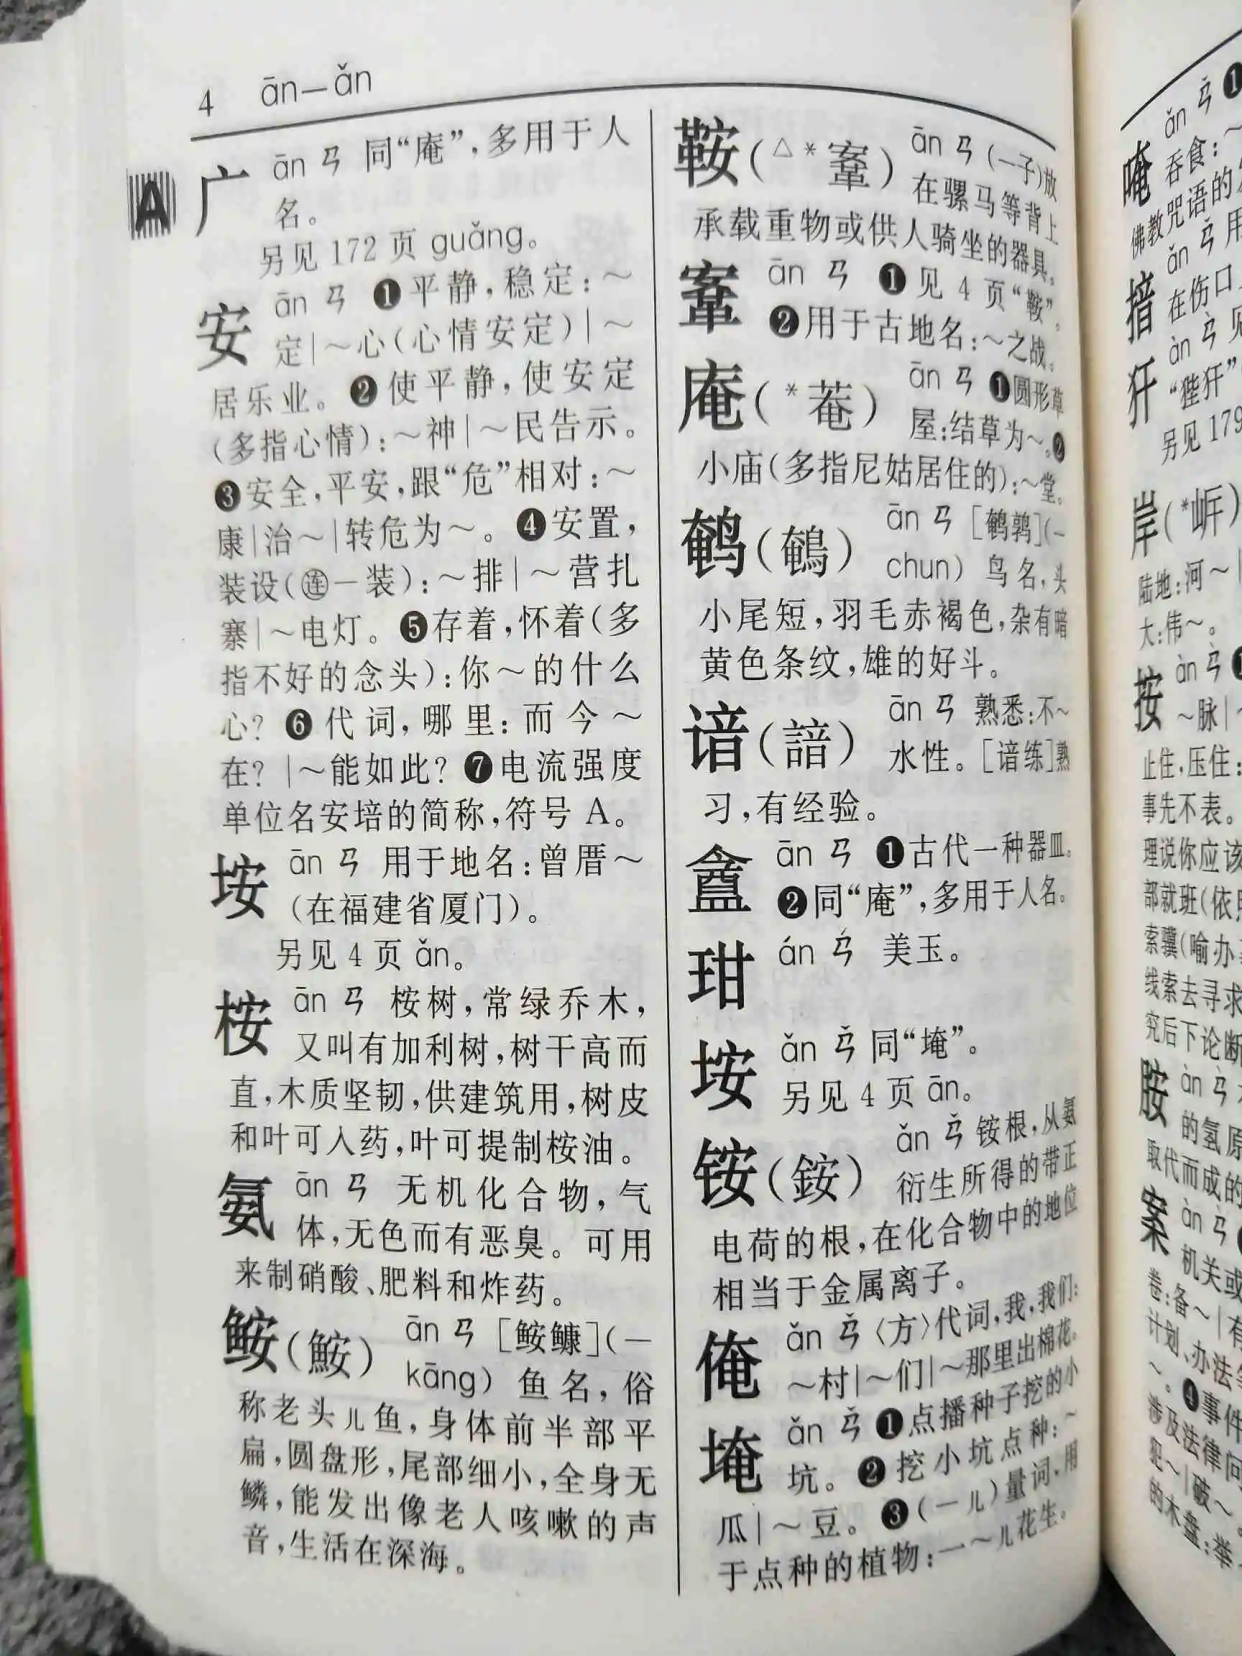 4 ān—ǎn
A
广 ān ㄢ 同“庵”，多用于人
名。
另见 172 页 guǎng。
安 ān ㄢ ❶平静，稳定：～
定|～心(心情安定)|～
居乐业。❷使平静，使安定
(多指心情)：～神|～民告示。
❸安全，平安，跟“危”相对：～
康|治～|转危为～。❹安置，
装设(㊣一装)：～排|～营扎
寨|～电灯。❺存着，怀着(多
指不好的念头)：你～的什么
心？❻代词，哪里：而今～
在？|～能如此？❼电流强度
单位名安培的简称，符号 A。
垵 ān ㄢ 用于地名：曾厝～
(在福建省厦门)。
另见 4 页 ǎn。
桉 ān ㄢ 桉树，常绿乔木，
又叫有加利树，树干高而
直，木质坚韧，供建筑用，树皮
和叶可入药，叶可提制桉油。
氨 ān ㄢ 无机化合物，气
体，无色而有恶臭。可用
来制硝酸、肥料和炸药。
𩽾(鮟) ān ㄢ [𩽾𩾌](一
kāng) 鱼名，俗
称老头儿鱼，身体前半部平
扁，圆盘形，尾部细小，全身无
鳞，能发出像老人咳嗽的声
音，生活在深海。
鞍(△*鞌) ān ㄢ (一子)放
在骡马等背上
承载重物或供人骑坐的器具。
鞌 ān ㄢ ❶见 4 页“鞍”。
❷用于古地名：～之战。
庵(*菴) ān ㄢ ❶圆形草
屋：结草为～。❷
小庙(多指尼姑居住的)：～堂。
鹌(鵪) ān ㄢ [鹌鹑](一
chun) 鸟名，头
小尾短，羽毛赤褐色，杂有暗
黄色条纹，雄的好斗。
谙(諳) ān ㄢ 熟悉：不～
水性。[谙练]熟
习，有经验。
盦 ān ㄢ ❶古代一种器皿。
❷同“庵”，多用于人名。
玵 án ㄢˊ 美玉。
垵 ǎn ㄢˇ 同“埯”。
另见 4 页 ān。
铵(銨) ǎn ㄢˇ 铵根，从氨
衍生所得的带正
电荷的根，在化合物中的地位
相当于金属离子。
俺 ǎn ㄢˇ 〈方〉代词，我，我们：
～村|～们|～那里出棉花。
埯 ǎn ㄢˇ ❶点播种子挖的小
坑。❷挖小坑点种：～
瓜|～豆。❸(一儿)量词，用
于点种的植物：一～儿花生。
唵 ǎn ㄢˇ ❶
吞食：～
佛教咒语的
揞 ǎn ㄢˇ 用
在伤口
犴 àn ㄢˋ 见
“狴犴”
另见 179
岸(*㟁)
陆地：河～|
大：伟～。
按 àn ㄢˋ ❶
～脉|～
止住，压住：
事先不表。
理说你应该
部就班(依照
索骥(喻办
线索去寻求
究后下论断
胺 àn ㄢˋ
的氢原
取代而成的
案 àn ㄢˋ
机关或
卷：备～|有
计划、办法等
～。❹事件
涉及法律问
犯～|破～。
的木盘：举